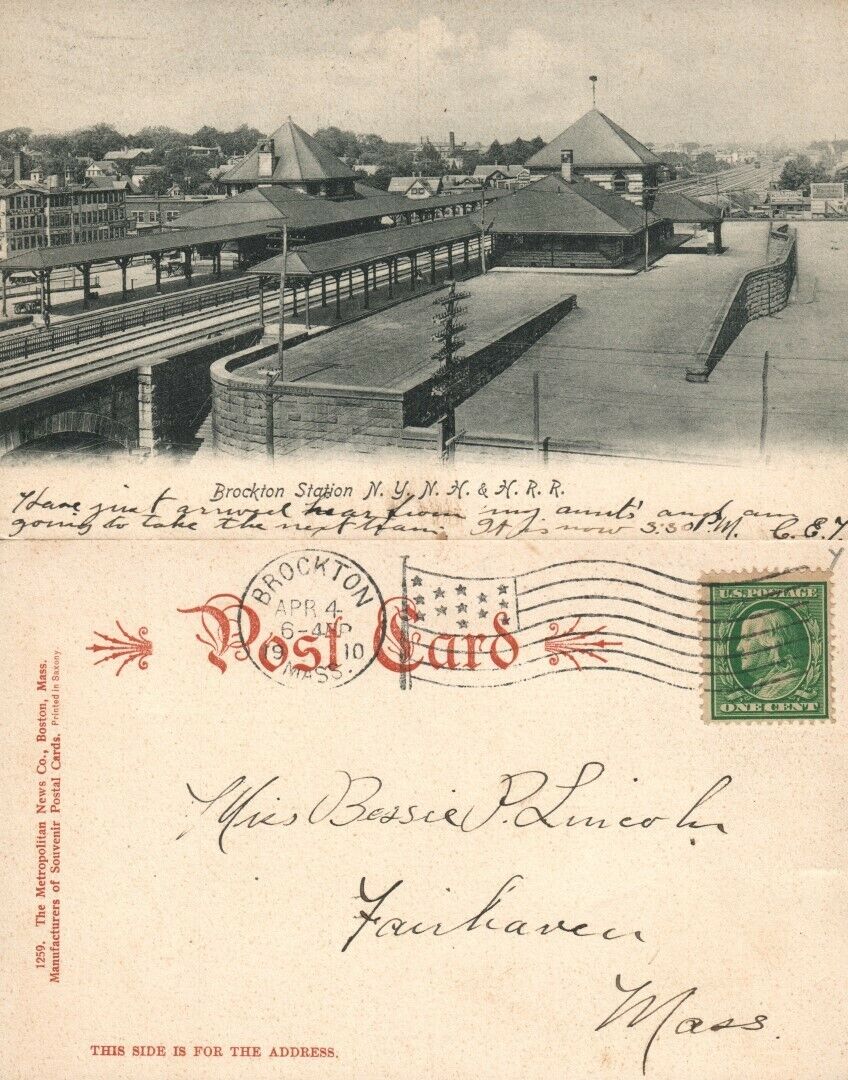 Brockton Station N. Y. N. H. & H. R. R.
Have just arrived hear from my aunts' and am
going to take the next train. It is now 3:30 P.M. C.E.T.
Post Card
BROCKTON
APR 4
19 10
MASS.
U.S. POSTAGE
ONE CENT
1259. The Metropolitan News Co., Boston, Mass.
Manufacturers of Souvenir Postal Cards. Printed in Saxony.
Miss Bessie P. Lincoln
Fairhaven
Mass.
THIS SIDE IS FOR THE ADDRESS.